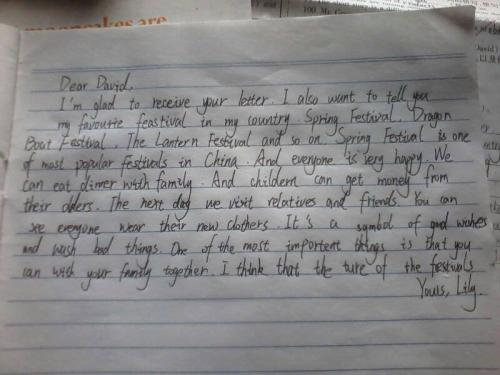 mooncakes are
Dear David,
I'm glad to receive your letter. I also want to tell you
my favourite feastival in my country. Spring Festival, Dragon
Boat Festival, The Lantern Festival and so on. Spring Festival is one
of most popular festivals in China. And everyone is very happy. We
can eat dinner with family. And childern can get money from
their olders. The next day we visit relatives and friends. You can
see everyone wear their new clothers. It's a symbol of good wishes
and wash bad things. One of the most importent things is that you
can with your family together. I think that the ture of the festivals
Yours, Lily.